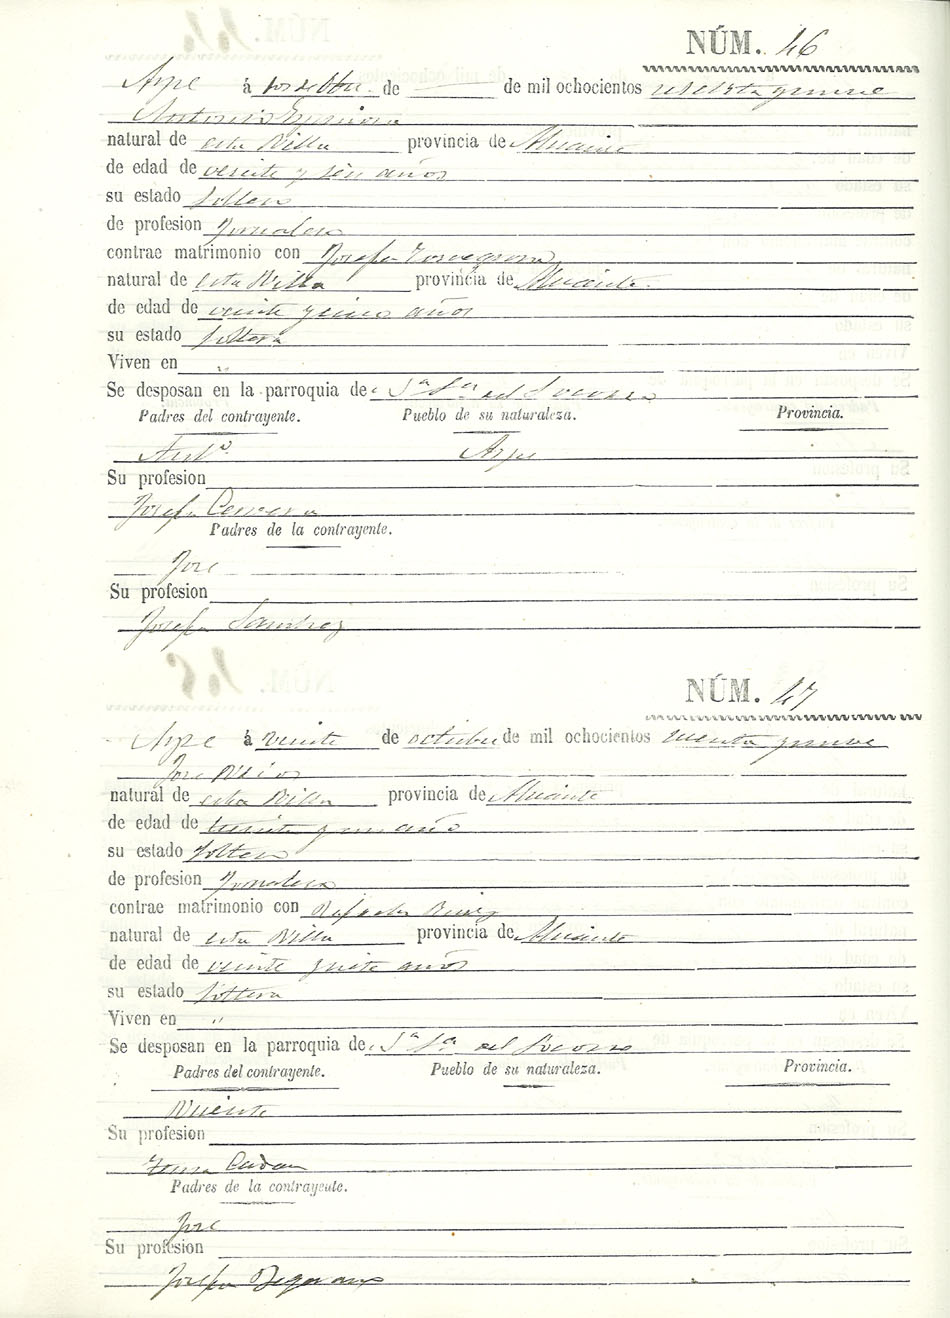 NÚM. 46
Aspe á de de mil ochocientos
Antonio
natural de esta Villa provincia de Alicante
de edad de veinte y seis años
su estado soltero
de profesion Jornalero
contrae matrimonio con Josefa Torregrosa
natural de esta Villa provincia de Alicante
de edad de veinte y cinco años
su estado soltera
Viven en "
Se desposan en la parroquia de Sª Sª del Socorro
Padres del contrayente. Pueblo de su naturaleza. Provincia.
Antº Aspe
Su profesion
Josefa Cervera
Padres de la contrayente.
Jose
Su profesion
Josefa Sanchez
NÚM. 47
Aspe á veinte de octubre de mil ochocientos
Jose
natural de esta Villa provincia de Alicante
de edad de años
su estado soltero
de profesion Jornalero
contrae matrimonio con Rafaela Ruiz
natural de esta Villa provincia de Alicante
de edad de veinte años
su estado soltera
Viven en "
Se desposan en la parroquia de Sª Sª del Socorro
Padres del contrayente. Pueblo de su naturaleza. Provincia.
Vicente
Su profesion
Padres de la contrayente.
Jose
Su profesion
Josefa